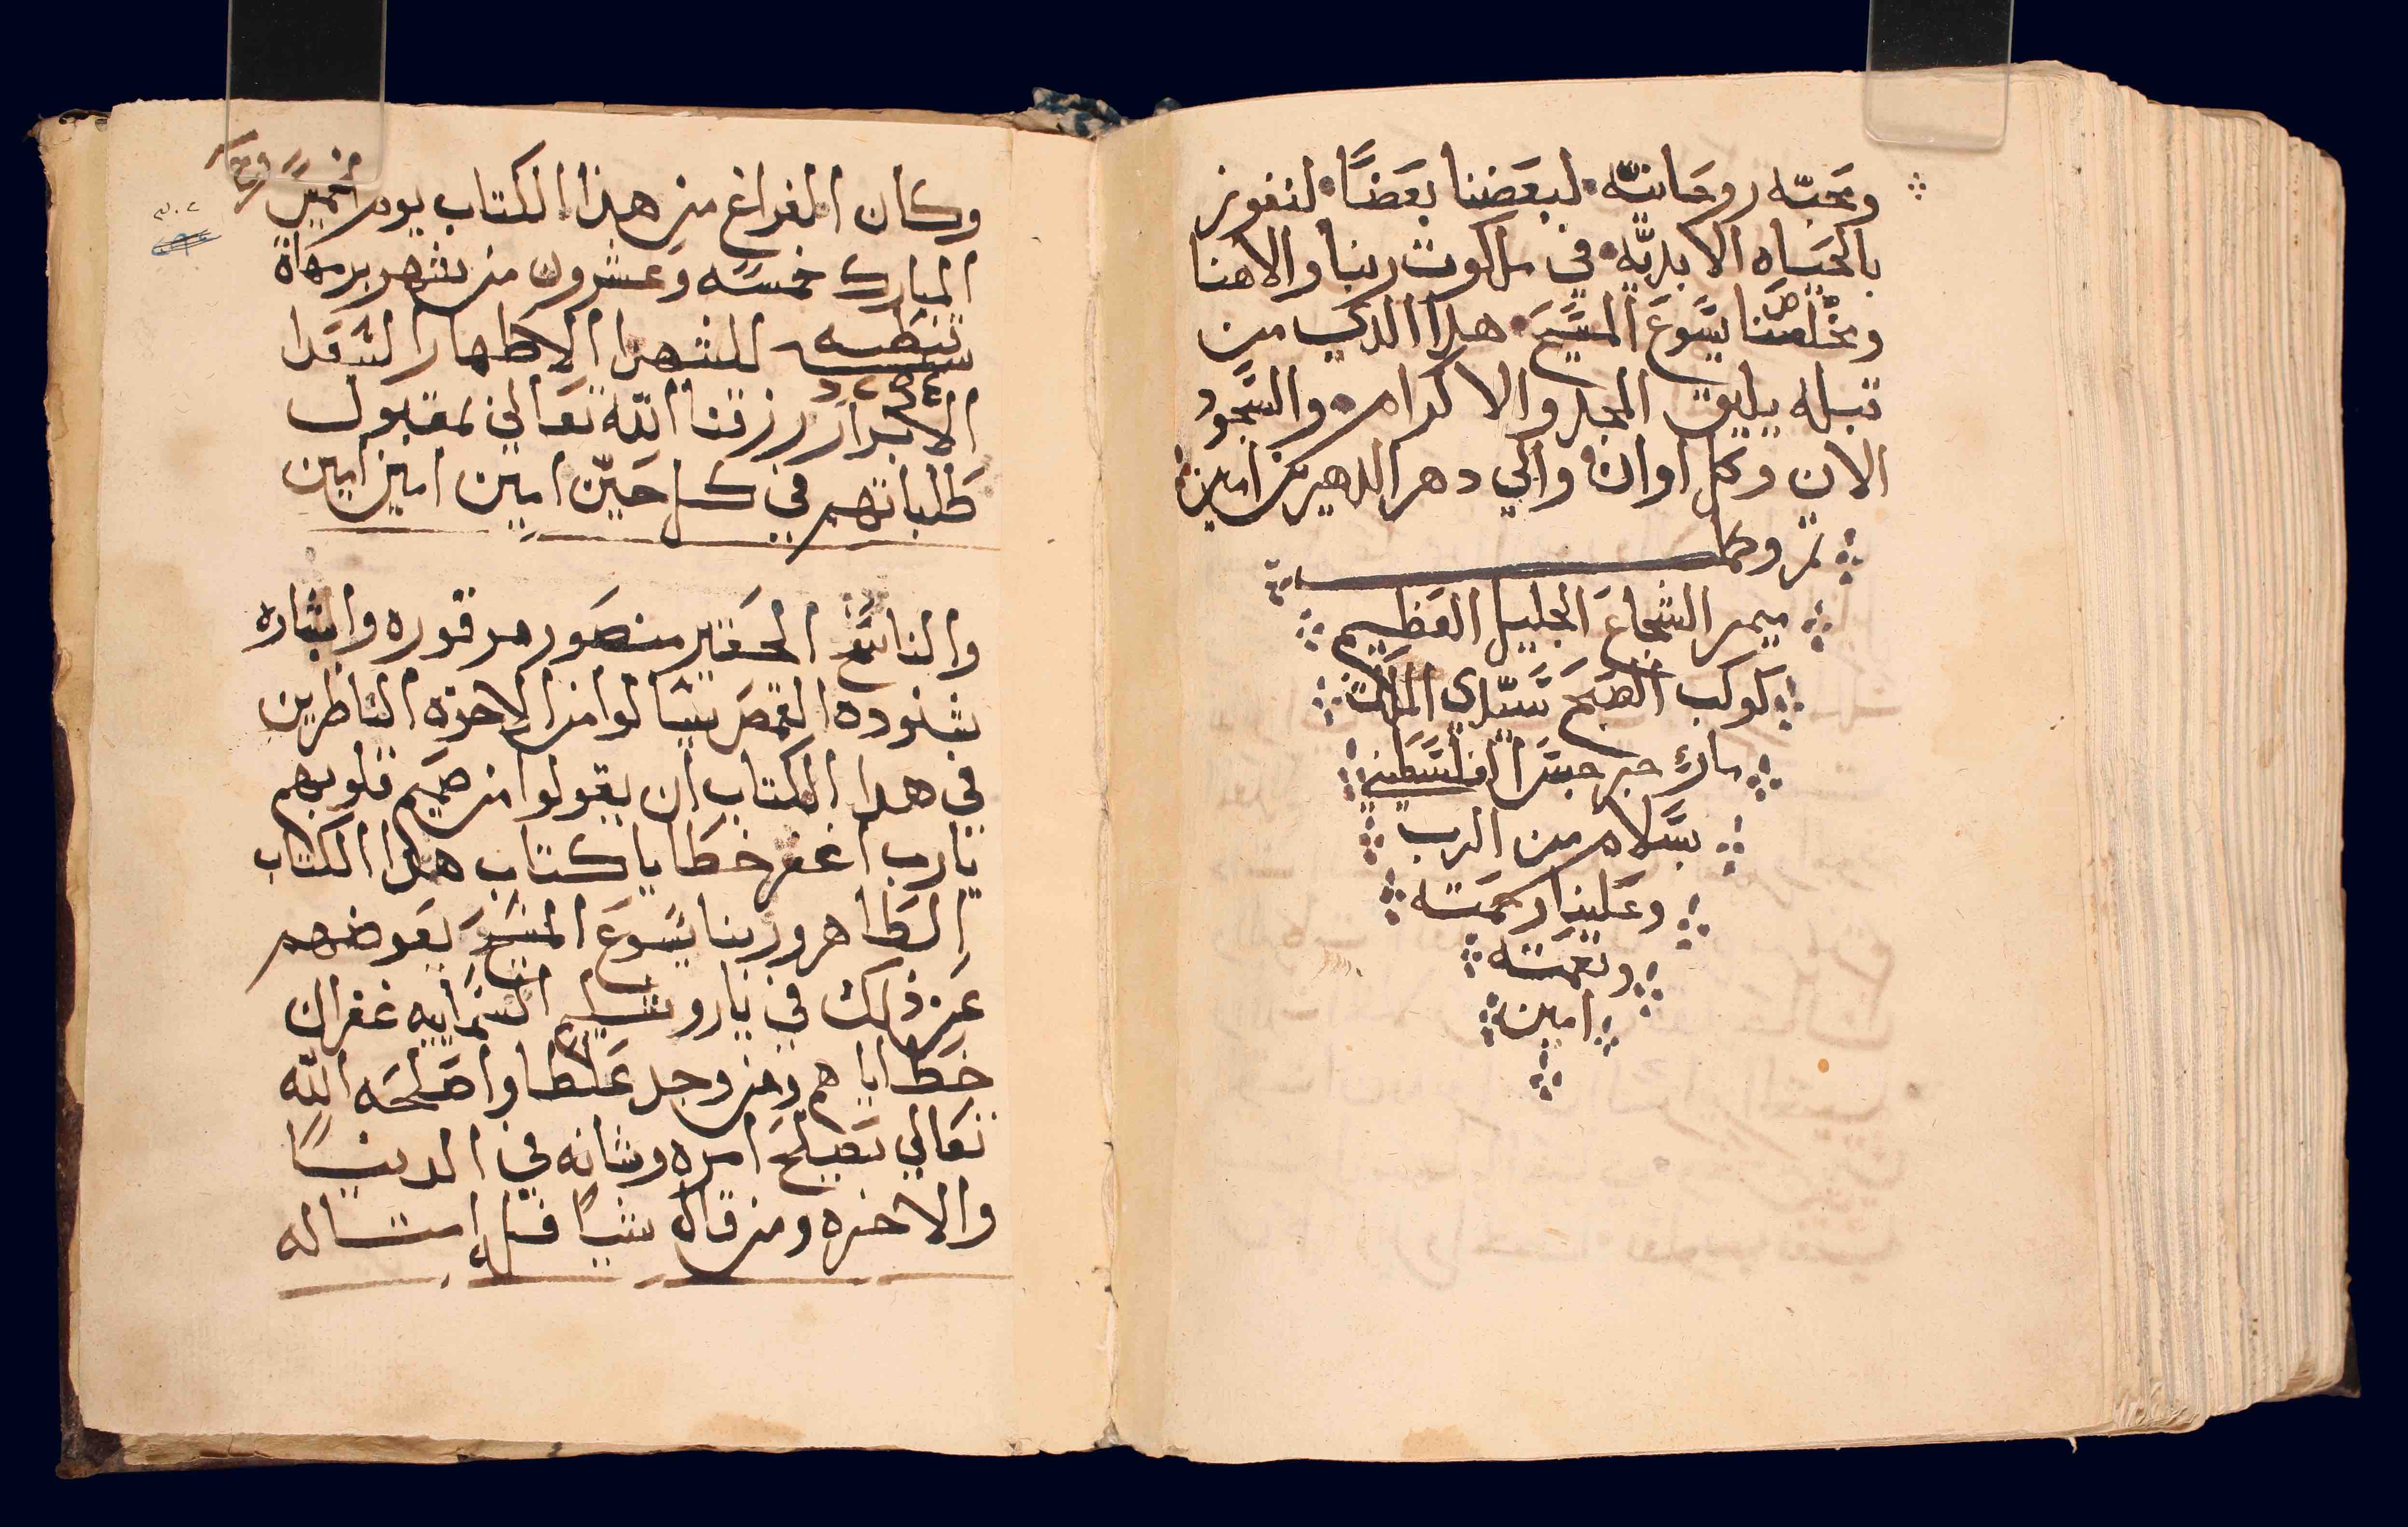 ومحبّه روحانيّه لبعَضنا بعَضًا لنفوز
بالحَياه الابديّه في ملكوت ربنا والاهنا
ومخلصنا يسَوعَ المسَيحَ هدا الدي من
قبله يليق المجد والاكرام والسَجود
الان وكل اوان والي دهر الداهرين امين
تم وكمل
ميمر الشجاعَ الجليل العَظيم
كوكب الصَبحَ سَيّدي الملك
ماري جرجسَ الفلسَطيني
بسَلام من الرب
وعَلينا رحمَته
ونعَمته
امين
وكان الفراغ من هذا الكتاب يوم الخميس
المبارك خمسَه وعشرون من شهر برمهاة
سنة للشهدا الاطهار السَعَدا
الابرار رزقنا اللّه تعَالي بمقبول
طَلباتهم في كل حَيّن امين امين امين
والناسَخ الحَقير منصَور مرقوره وابشاره
شنوده القمصَ يسَالوا من الاخوه الناظرين
في هدا الكتاب ان يقولوا من صَميم قلوبهم
يارب اغفر خطَايا كتاب هدا الكتاب
الطَاهر وربنا يسَوعَ المسَيحَ يعَوضهم
عَن ذلك في ياروشليم السَمايه غفران
خطَاياهم ومن وجد غلطَا واصَلحَه اللّه
تعَالي يصَلحَ امره وشانه في الدنيا
والاخره ومن قال شياً فله امتساله